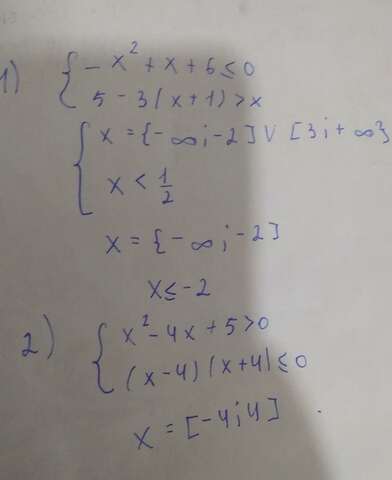 1) { -x² + x + 6 ≤ 0
5 - 3(x + 1) > x
{ x = {-∞; -2] V [3; +∞}
x < 1/2
x = {-∞; -2]
x ≤ -2
2) { x² - 4x + 5 > 0
(x - 4)(x + 4) ≤ 0
x = [-4; 4] .